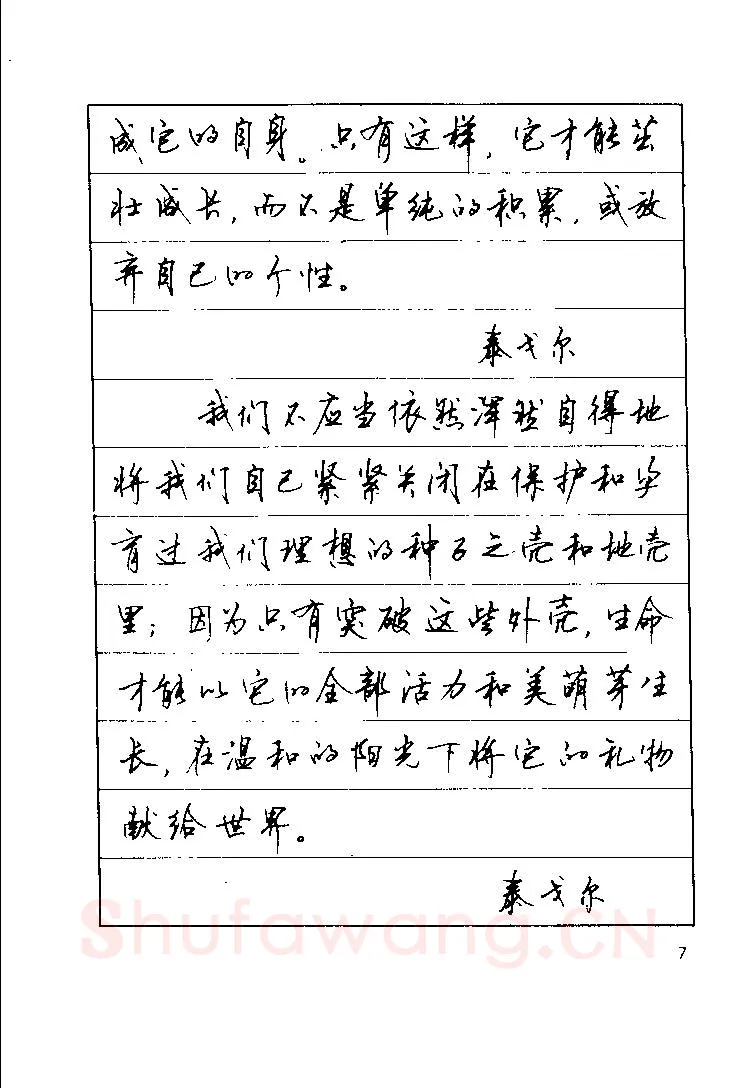 成它的自身。只有这样，它才能茁
壮成长，而不是单纯的积累，或放
弃自己的个性。
泰戈尔
我们不应当依然浑然自得地
将我们自己紧紧关闭在保护和孕
育过我们理想的种子之壳和地壳
里；因为只有突破这些外壳，生命
才能以它的全部活力和美萌芽生
长，在温和的阳光下将它的礼物
献给世界。
泰戈尔
Shufawang.CN
7